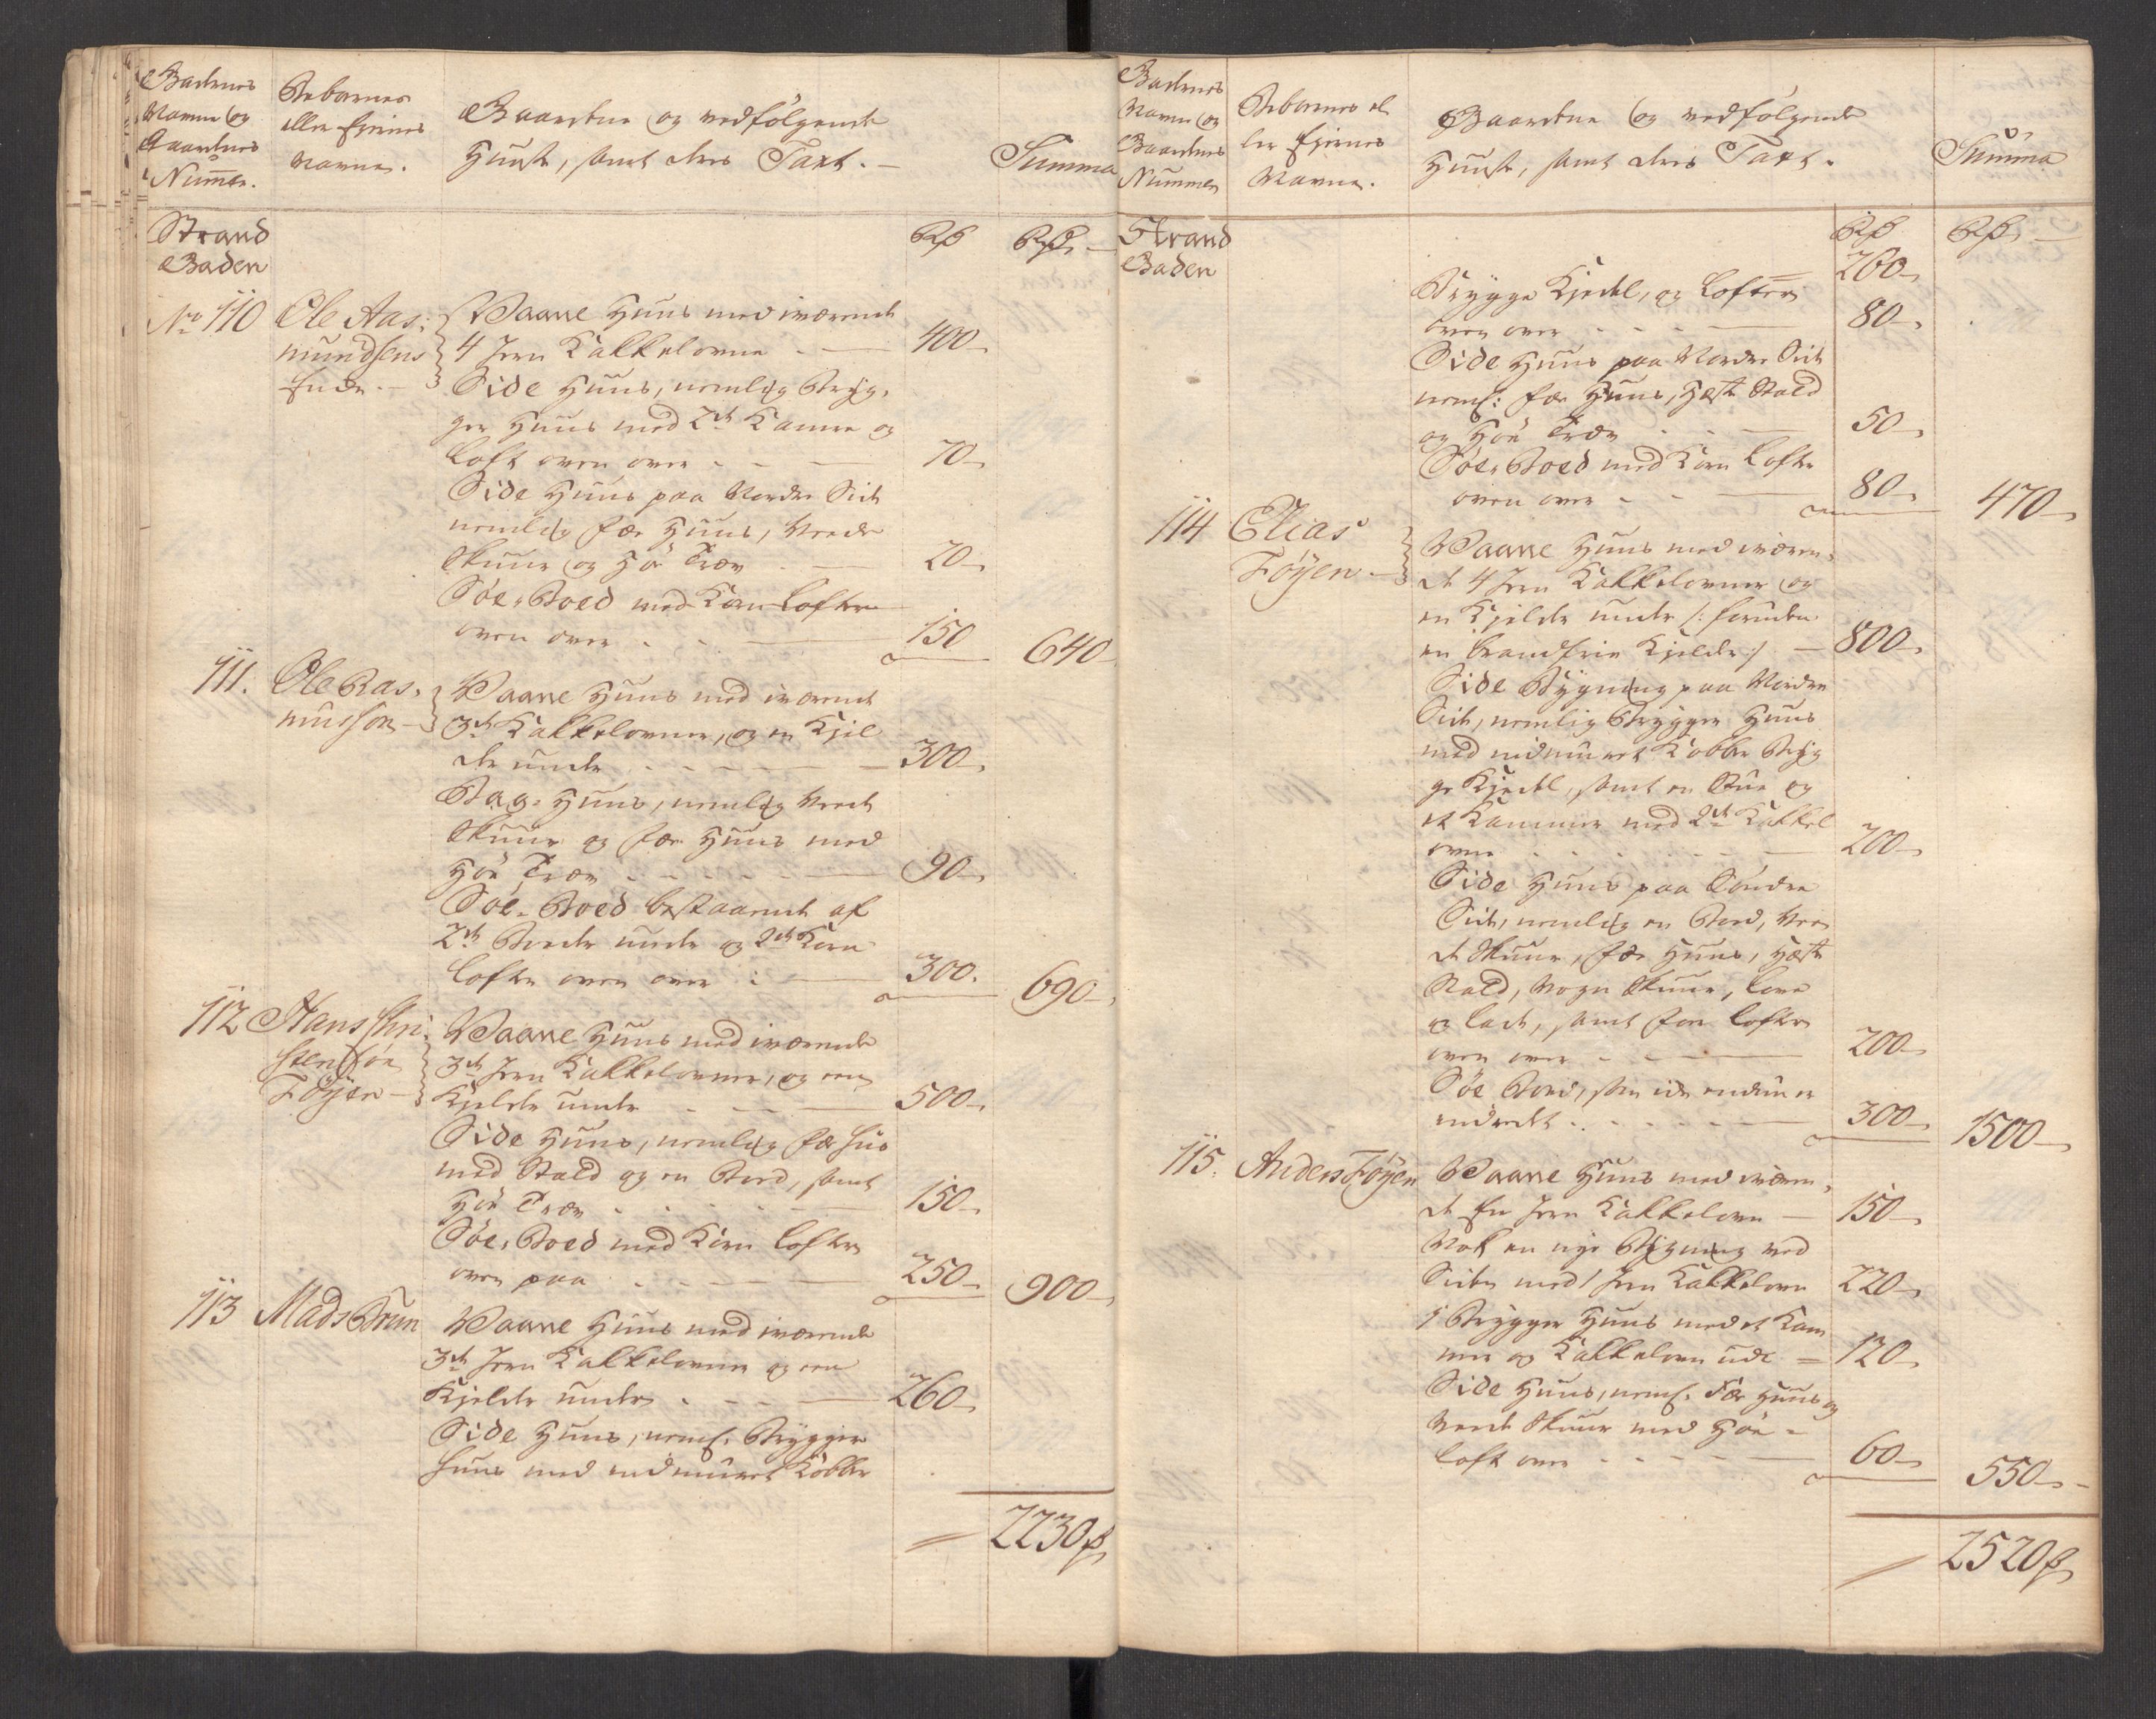 Gadernes
Navne og
Gaardenes
Nummer.
Beboernes
eller Ejernes
Navne.
Gaardene og vedfølgende
Huuse, samt deres Taxt.
Summa
Strand
Gaden
Rdr
Rdr
No 110
Ole Aas-
mundsens
Enke.
Vaane Huus med iværende
4 Jern Kakkelovne 400
Side Huus, nemlig Bryg-
ger Huus med 2de Kamre og
Loft oven over 70
Side Huus paa Nordre Side
nemlig Fæe Huus, Veede
Skuur og Høe Træv 20
Søe-Boed med Korn Lofter
oven over 150
640
111.
Ole Ras-
musson
Vaane Huus med iværende
3de Kakkelovner, og en Kjel
der under 300
Bag-Huus, nemlig Veed
Skuur og Fæe Huus med
Høe Træv 90
Søe-Boed bestaaende af
2de Boeder under og 2de Korn
Lofter oven over 300
690
112
Hans Chri-
stensøn
Føyen
Vaane Huus med iværende
3de Jern Kakkelovner, og een
Kjelder under 500
Side Huus, nemlig Fæehus
med Stald og en Boed, samt
Høe Træv 150
Søe-Boed med Korn Lofter
oven paa 250
900
113
Mads Brun
Vaane Huus med iværende
3de Jern Kakkelovner og een
Kjelder under 260
Side Huus, neml. Brygger
Huus med indmuret Kobber
2230
Gadernes
Navne og
Gaardenes
Nummer
Beboernes el
ler Ejernes
Navne.
Gaardene og vedfølgende
Huuse, samt deres Taxt.
Summa
Strand
Gaden
Rdr
Rdr
260
Brygge Kjedel, og Lofter
oven over 80
Side Huus paa Nordre Side
neml: Fæe Huus, Hæste Stald
og Høe Træv 50
Søe-Boed med Korn Lofter
oven over 80
470
114
Elias
Føyen
Vaane Huus med iværen-
de 4 Jern Kakkelovner og
en Kjelder under /: foruden
en brandfrie Kjelder :/ 800
Side Bygning paa Nordre
Side, nemlig Brygger Huus
med indmuret Kobber Bryg
ge Kjedel, samt en Stue og
et Kammer med 2de Kakkel
ovne 200
Side Huus paa Søndre
Side, nemlig en Boed, Vee
de Skuur, Fæe Huus, Hæste
Stald, Vogn Skuur, Love
og Lade, samt Foer Lofter
oven over 200
Søe Boed, som ikke endnu er
indredt 300
1500
115.
Anders Føyen
Vaane Huus med iværen-
de En Jern Kakkelovn 150
Nok en nye Bygning ved
Siden med 1 Jern Kakkelovn 220
1 Brygger Huus med et Kam
mer og Kakkelovn udi 120
Side Huus, neml. Fæe Huus og
Veede Skuur med Høe-
loft over 60
550
2520